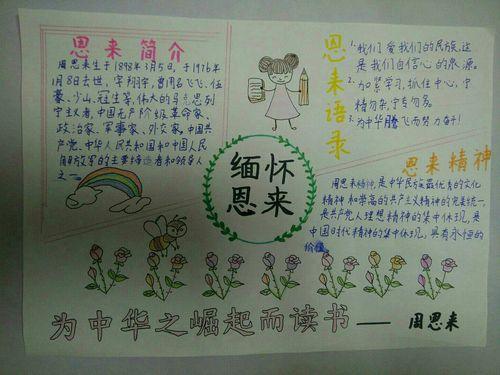 恩来简介
周恩来生于1898年3月5日，于1976年
1月8日去世，字翔宇，曾用名飞飞、伍
豪、少山、冠生等，伟大的马克思列
宁主义者，中国无产阶级革命家、
政治家、军事家、外交家，中国共
产党、中华人民共和国和中国人民
解放军的主要缔造者和领导人
之一。
恩来语录
1.我们爱我们的民族，这
是我们自信心的泉源。
2.加紧学习，抓住中心，宁
精勿杂，宁专勿多。
3.为中华腾飞而努力奋斗！
缅怀
恩来
恩来精神
周恩来精神，是中华民族最优秀的文化
精神和崇高的共产主义精神的完美统一，
是共产党人理想精神的集中体现，是
中国时代精神的集中体现，具有永恒的
价值。
为中华之崛起而读书——周恩来